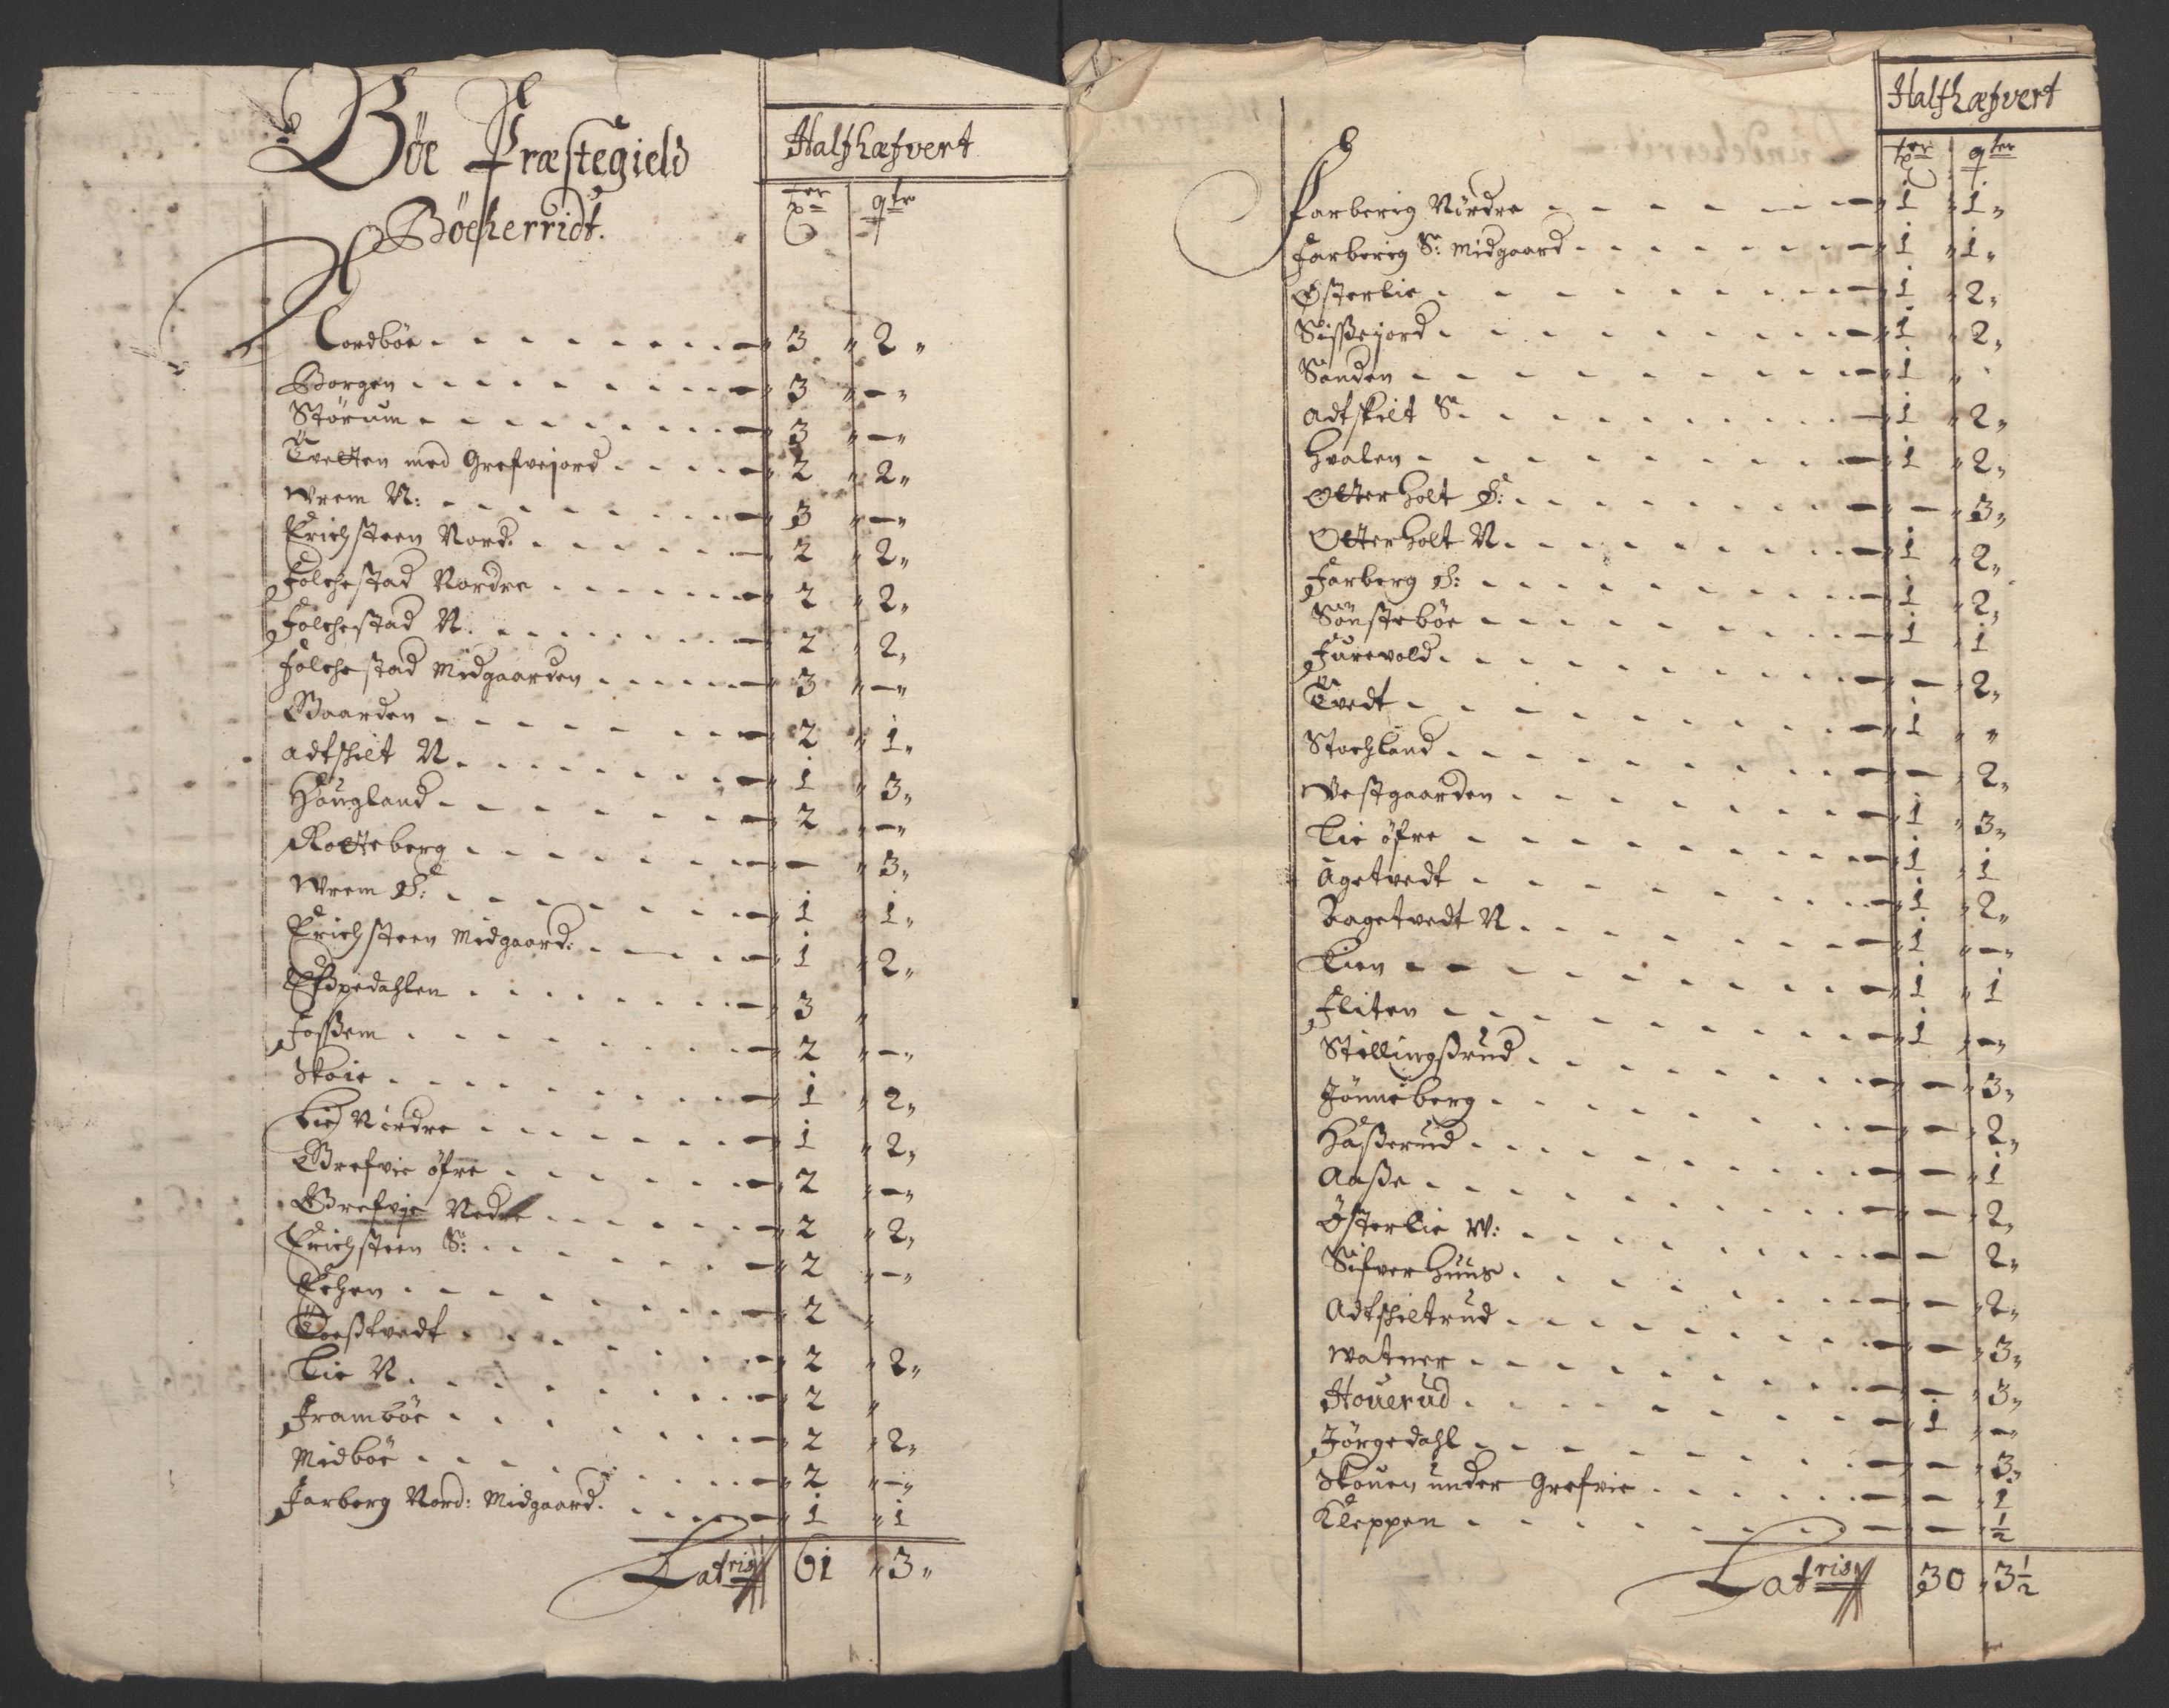 Böe Præstegield
Böeherridt.
Halfhæfvert
Nordböe - - - - - - - - 3 " 2 "
Borgen - - - - - - - - 3 " - "
Störum - - - - - - - - 3 " - "
Tvetten med Grefvejord - - - - 2 " 2 "
Wrem N: - - - - - - - - 3 " - "
Erichsteen Nord. - - - - - - 2 " 2 "
Folchestad Nordre - - - - - - 2 " 2 "
Folchestad N. - - - - - - - - 2 " 2 "
Folchestad Midgaarden - - - - - - 3 " - "
Gaarden - - - - - - - - 2 " 1 "
Adtschilt N. - - - - - - - - 1 " 3 "
Haugland - - - - - - - - 2 " - "
Rotteberg - - - - - - - - - " 3 "
Wrem S: - - - - - - - - 1 " 1 "
Erichsteen Midgaard: - - - - - 1 " 2 "
Espedahlen - - - - - - - - 3 "
Fossem - - - - - - - - 2 " - "
Skoie - - - - - - - - 1 " 2 "
Lie Nördre - - - - - - - 1 " 2 "
Grefvie öfre - - - - - - - 2 " - "
Grefvie Nedre - - - - - - 2 " 2 "
Erichsteen S: - - - - - - - 2 " - "
Echen - - - - - - - - 2 "
Toestvedt - - - - - - - - 2 " 2 "
Lie N. - - - - - - - - 2 "
Framböe - - - - - - - - 2 " 2 "
Midböe - - - - - - - - 2 " - "
Farberg Nord: Midgaard. - - - - - 1 " 1
Latris 61 " 3 "
Halfhæfvert
Farberig Nördre - - - - - - 1 " 1 "
Farberig S: Midgaard - - - - - - 1 " 1 "
Østerlie - - - - - - - - 1 " 2 "
Sissejord - - - - - - - - 1 " 2 "
Sanden - - - - - - - - 1 " "
Adtskilt S. - - - - - - - - 1 " 2 "
Hvalen - - - - - - - - 1 " 2 "
Otterholt S: - - - - - - - - - " 3 "
Otterholt N - - - - - - - - 1 " 2 "
Farberg S: - - - - - - - - 1 " 2 "
Sönsteböe - - - - - - - - 1 " 1
Furevold - - - - - - - - - " 2 "
Tvedt - - - - - - - - 1 " "
Stochland - - - - - - - - - " 2 "
Westgaarden - - - - - - - - 1 " 3 "
Lie öfre - - - - - - - - 1 " 1
Agetvedt - - - - - - - - 1 " 2 "
Aagetvedt N - - - - - - - - 1 " - "
Lien - - - - - - - - 1 " 1
Fliten - - - - - - - - 1 " - "
Stillingsrud - - - - - - - - - " 3 "
Jönneberg - - - - - - - - - " 2 "
Hasserud - - - - - - - - - " 1
Aasse - - - - - - - - - " 2 "
Østerlie W: - - - - - - - - - 2 "
Silfverhuus - - - - - - - - - " 2 "
Adtschiltrud - - - - - - - - - " 3 "
Watner - - - - - - - - - " 3 "
Houerud - - - - - - - - 1 " - "
Jörgedahl - - - - - - - - - " 3 "
Skouen under Grefvie - - - - - - " 1
Kleppen - - - - - - - - - " ½
Latris 30 " 3½